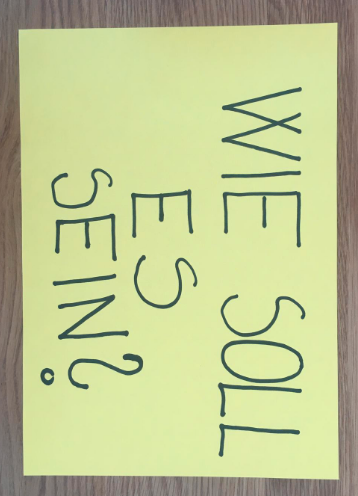 WIE SOLL
ES
SEIN?